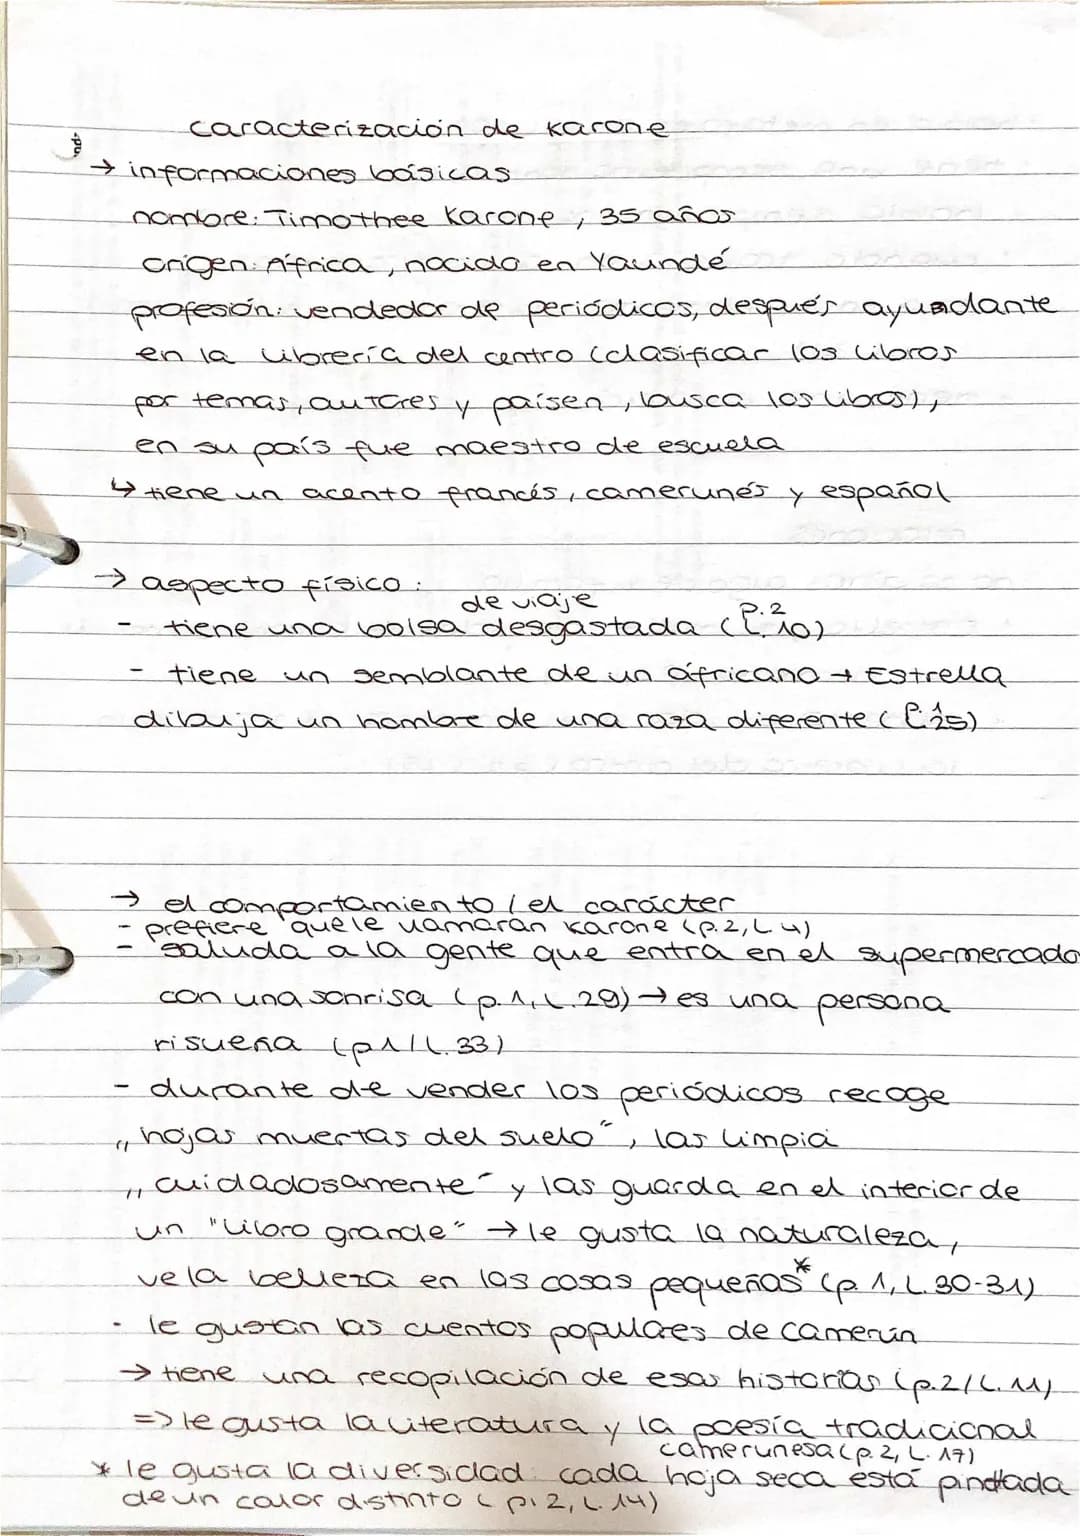 caracterización de Karone
→ informaciones básicas
nombre: Timothee Karone, 35 años
origen: África, nacido en Yaundé
profesión: vendedor de periódicos, después ayudante
en la librería del centro (clasificar los libros
por temas, autores y paísen, busca los libros),
en su país fue maestro de escuela
↳ tiene un acento francés, camerunés y español
→ aspecto físico:
- tiene una bolsa de viaje desgastada (p.2 L. 10)
- tiene un semblante de un áfricano → Estrella
dibuja un hombre de una raza diferente (p.1 L.25)
→ el comportamiento / el carácter
- prefiere que le llamaran Karone (p.2, L 4)
- saluda a la gente que entra en el supermercado
con una sonrisa (p. 1, L.29) → es una persona
risueña (p1/L.33)
- durante de vender los periódicos recoge
„hojas muertas del suelo“, las limpia
„cuidadosamente“ y las guarda en el interior de
un "libro grande“ → le gusta la naturaleza,
ve la belleza en las cosas pequeñas* (p. 1, L. 30-31)
- le gustan las cuentos populares de Camerún
→ tiene una recopilación de esas historias (p.2/L. 11)
=> le gusta la literatura y la poesía tradicional
camerunesa (p. 2, L. 17)
* le gusta la diversidad: cada hoja seca está pindtada
de un color distinto (p. 2, L. 14)